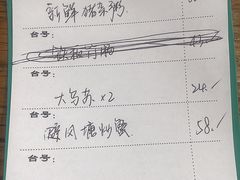 新鲜猪杂粥
台号:
台号:
大乌苏 x2 24.-
台号:
避风塘炒蟹 58.-
台号: